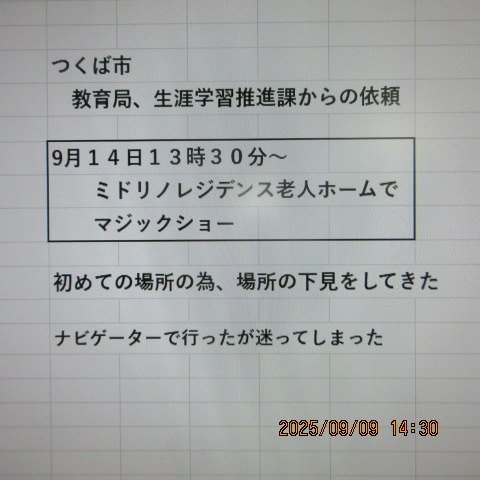 つくば市
教育局、生涯学習推進課からの依頼
9月１４日１３時３０分～
ミドリノレジデンス老人ホームで
マジックショー
初めての場所の為、場所の下見をしてきた
ナビゲーターで行ったが迷ってしまった
2025/09/09 14:30